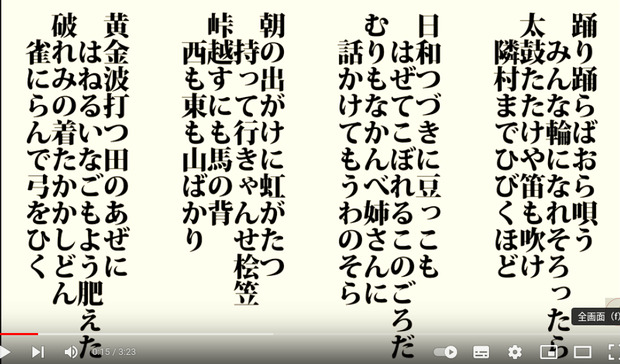 踊り踊らばおら唄う
みんな輪になれそろったら
太鼓たたけや笛も吹け
隣村までひびくほど
日和つづきに豆っこも
はぜてこぼれるこのごろだ
むりもなかんべ姉さんに
話かけてもうわのそら
朝の出がけに虹がたつ
持って行きゃんせ桧笠
峠越すにも馬の背
西も東も山ばかり
黄金波打つ田のあぜに
はねるいなごもよう肥えた
破れみの着たかかしどん
雀にらんで弓をひく
全画面（f）
0:15 / 3:23